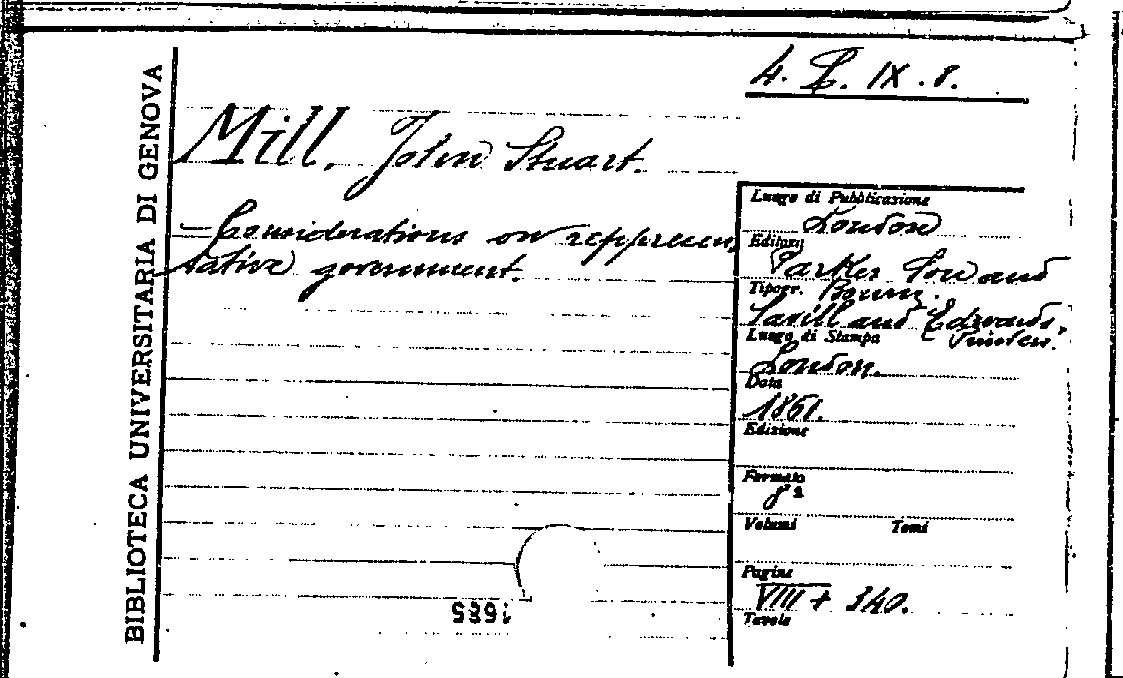 BIBLIOTECA UNIVERSITARIA DI GENOVA
4. L. IX. 8.
Mill, John Stuart.
— Considerations on reppresen,
tative government.
Luogo di Pubblicazione
London
Editore
Parker Son and
Bourn.
Tipogr.
Savill and Edwards,
Printers.
Luogo di Stampa
London.
Data
1861.
Edizione
Formato
8°
Volumi Tomi
Pagine
VIII + 340.
Tavole